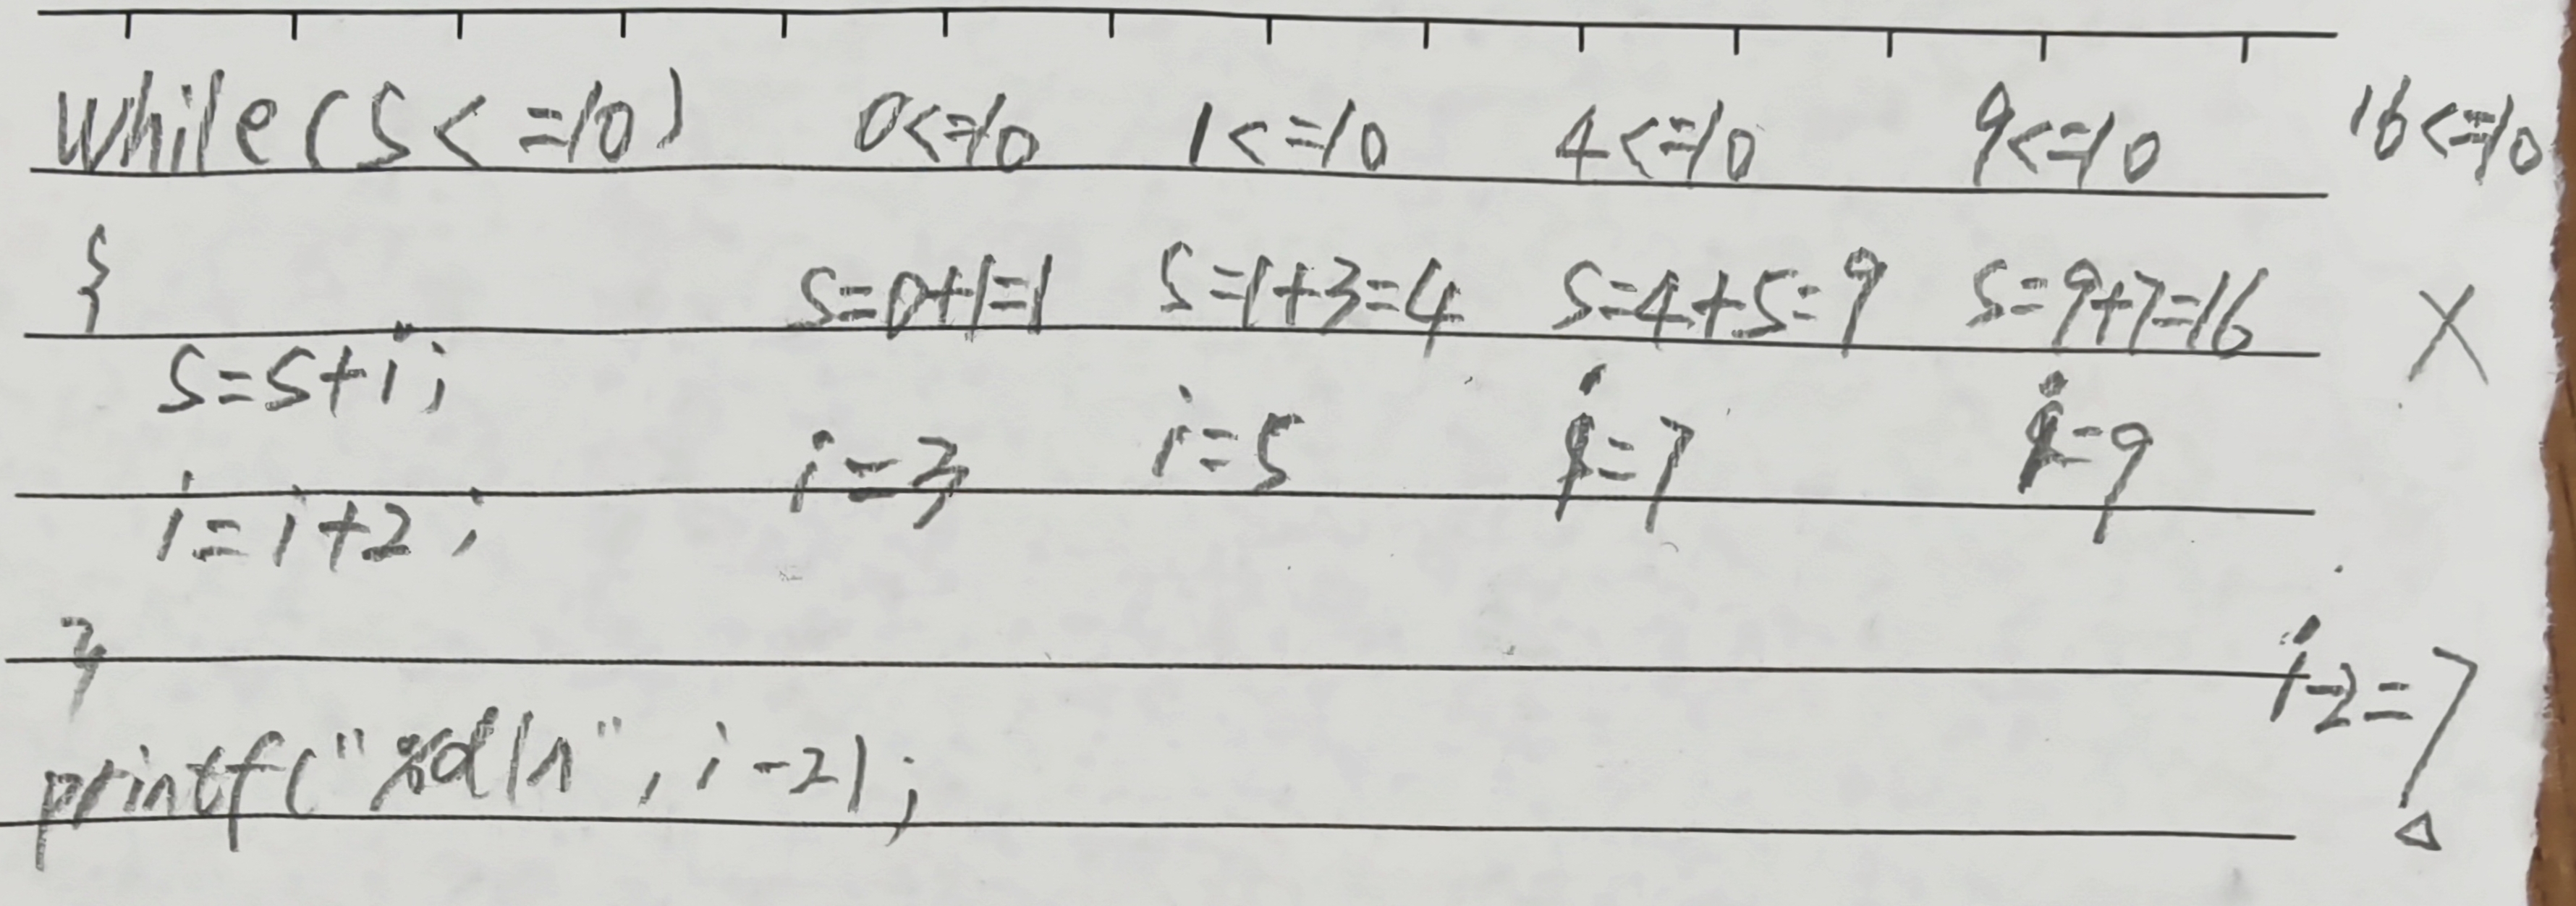 while(S<=10) 0<=10 1<=10 4<=10 9<=10 16<=10
{ S=0+1=1 S=1+3=4 S=4+5=9 S=9+7=16 X
S=S+i; i=3 i=5 i=7 i=9
i=i+2;
} i-2=7
printf("%d\n", i-2);